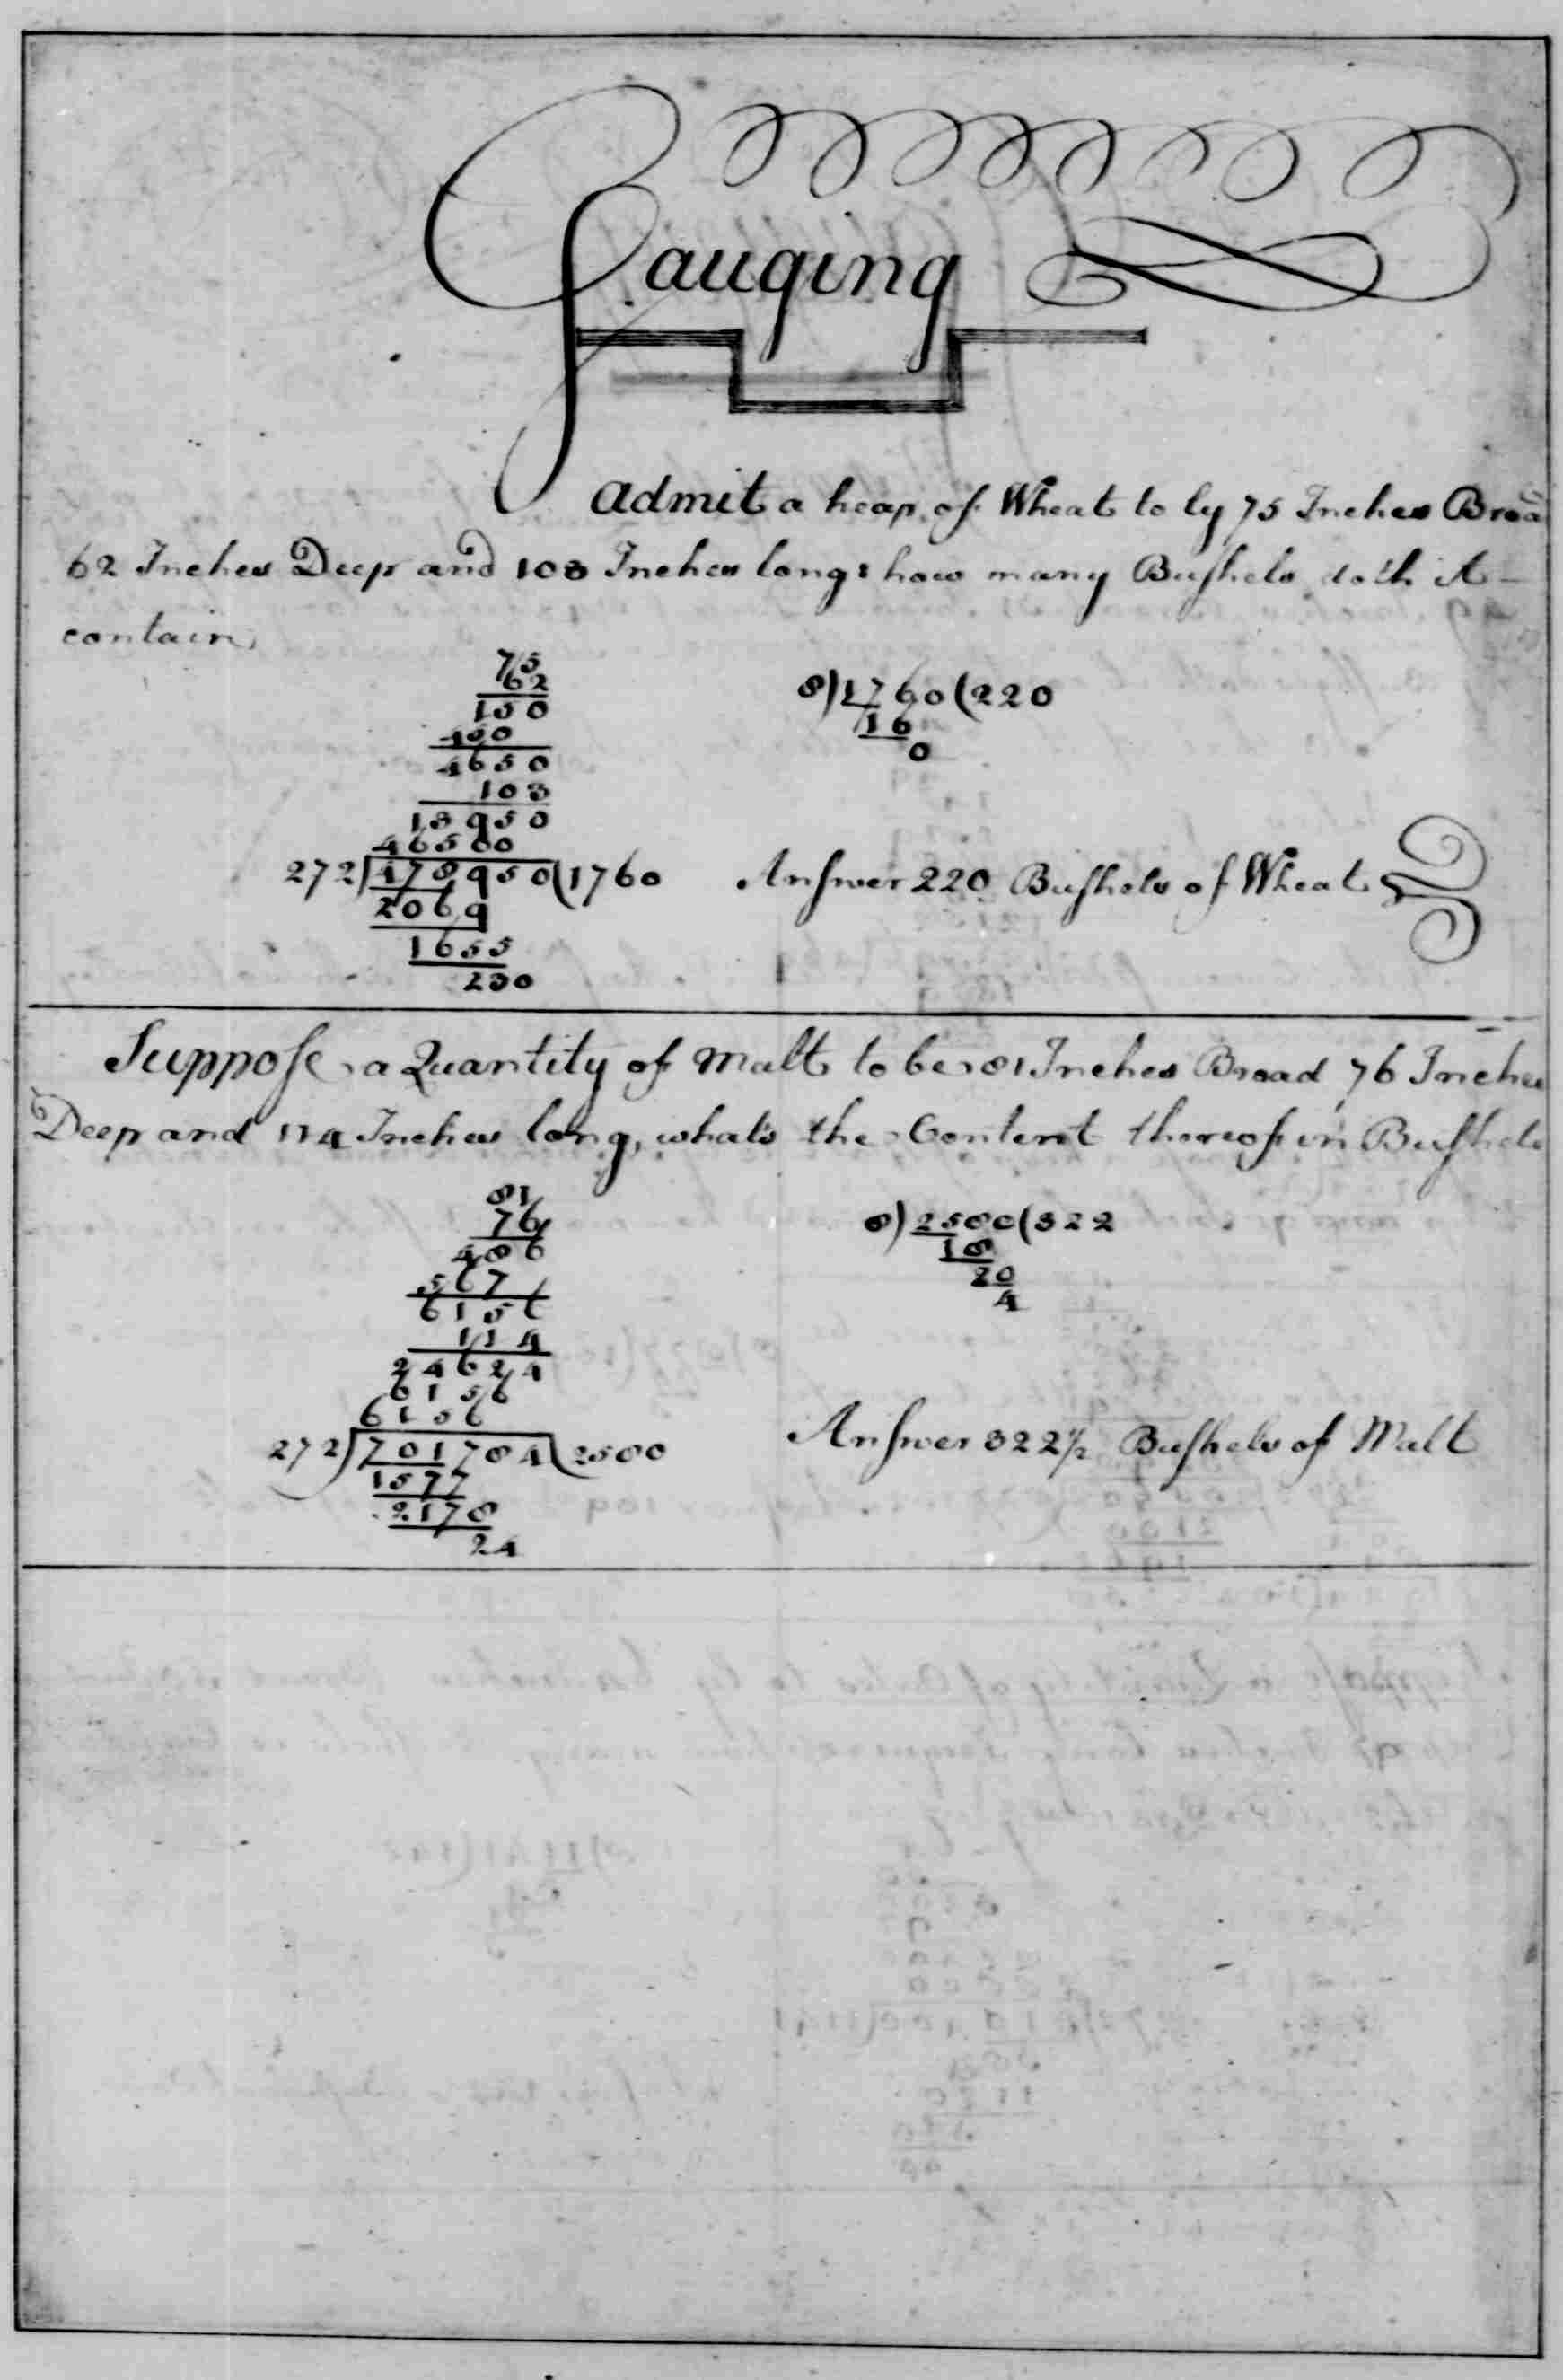 Gauging
Admit a heap of Wheat to ly 75 Inches Broad
62 Inches Deep and 103 Inches long: how many Bushels doth it
contain
75
62
150
450
4650
103
13950
46500
272)478950(1760
2069
1655
230
8)1760(220
16
0
Answer 220 Bushels of Wheat
Suppose a Quantity of Malt to be 81 Inches Broad 76 Inches
Deep and 114 Inches long, what's the Content thereof in Bushels
81
76
486
567
6156
114
24624
6156
6156
272)701784(2580
1577
2178
24
8)2580(322
18
20
4
Answer 322 1/2 Bushels of Malt